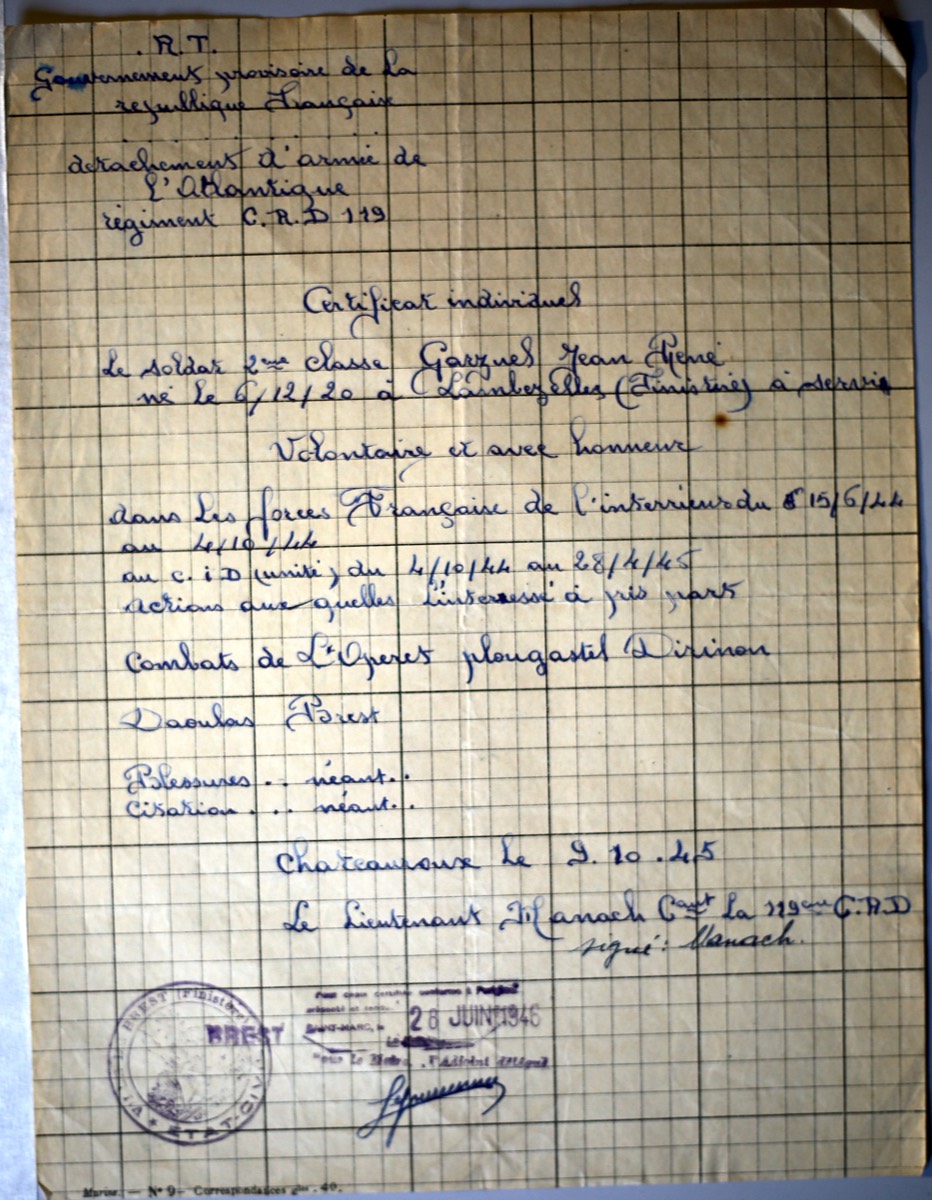 . R.T.
Gouvernement provisoire de la
republique Française
detachement d'armée de
l'Atlantique
régiment C.R.D 119
Certificat individuel
Le soldat 2eme classe Garzuel Jean René
né le 6/12/20 à Lambezelles (Finistère) à servie
Volontaire et avec honneur
dans les forces Française de l'interrieur du 15/6/44
au 4/10/44
au C.i D (unité) du 4/10/44 au 28/4/45
Actions aux quelles l'interressé à pris part
Combats de L'Operet plougastel Dirinon
Daoulas Brest
Blessures .. néant..
Citation . .. néant..
Chateauroux le 9.10.45
Le Lieutenant Manach Cant la 119eme C.R.D
signé: Manach.
BREST (Finistère)
BREST
ETAT-CIVIL
Pour copie certifiée conforme à l'original
SAINT-MARC, le
26 JUIN 1946
Pour le Maire, l'adjoint délégué
Marine. — N° 9 - Correspondances gles. 40.